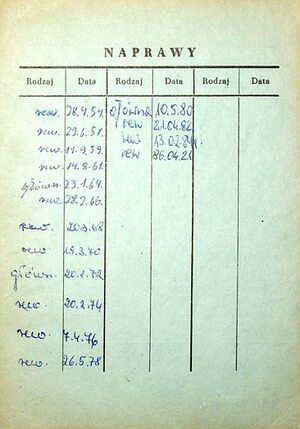 NAPRAWY
Rodzaj Data Rodzaj Data Rodzaj Data
rew. 28.9.54. główna 10.5.80
rew. 29.6.57. rew 21.04.82
rew. 11.9.59. rew 13.02.84r.
rew. 14.8.61. rew 86.04.21
główn. 23.1.64.
rew. 28.2.66.
rew. 20.3.68
rew. 15.3.70
główn. 20.1.72
rew. 20.2.74
rew. 7.4.76
rew. 26.5.78